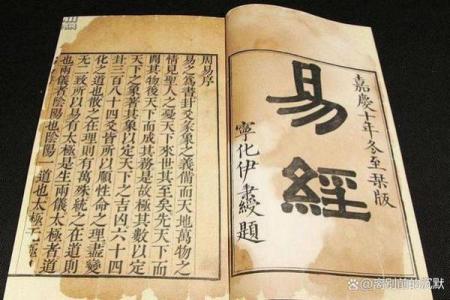 嘉慶十年冬至栞版
易經
寧化伊秉綬題
周易序
易之為書卦爻彖象之義備而天地萬物之
情見聖人之憂天下來世其至矣先天下而
開其物後天下而成其務是故極其數以定
天下之象著其象以定天下之吉凶六十四
卦三百八十四爻皆所以順性命之理盡變
化之道也散之在理則有萬殊統之在道則
無二致所以易有太極是生兩儀太極者道
也兩儀者陰陽也陰陽一道也太極無極也